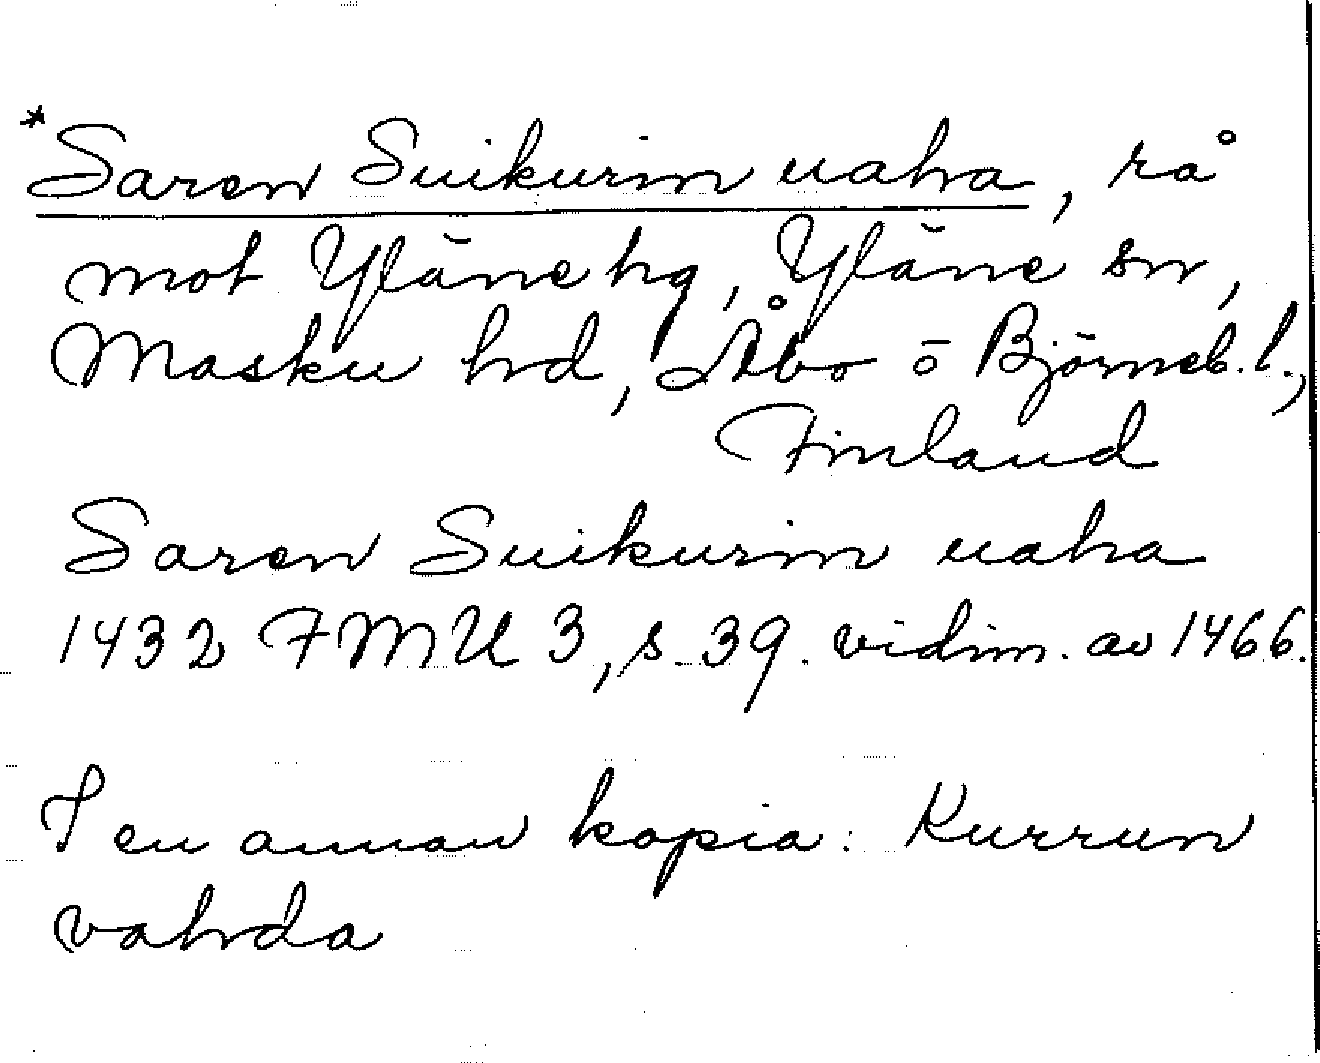 *Saren Suikurin uaha, rå
mot Yläne hg, Yläne sn,
Masku hd, Åbo o Björneb. l.,
Finland
Saren Suikurin uaha
1432 FMU 3, s 39. vidim. av 1466.
I en annan kopia: Kurrun
vahda